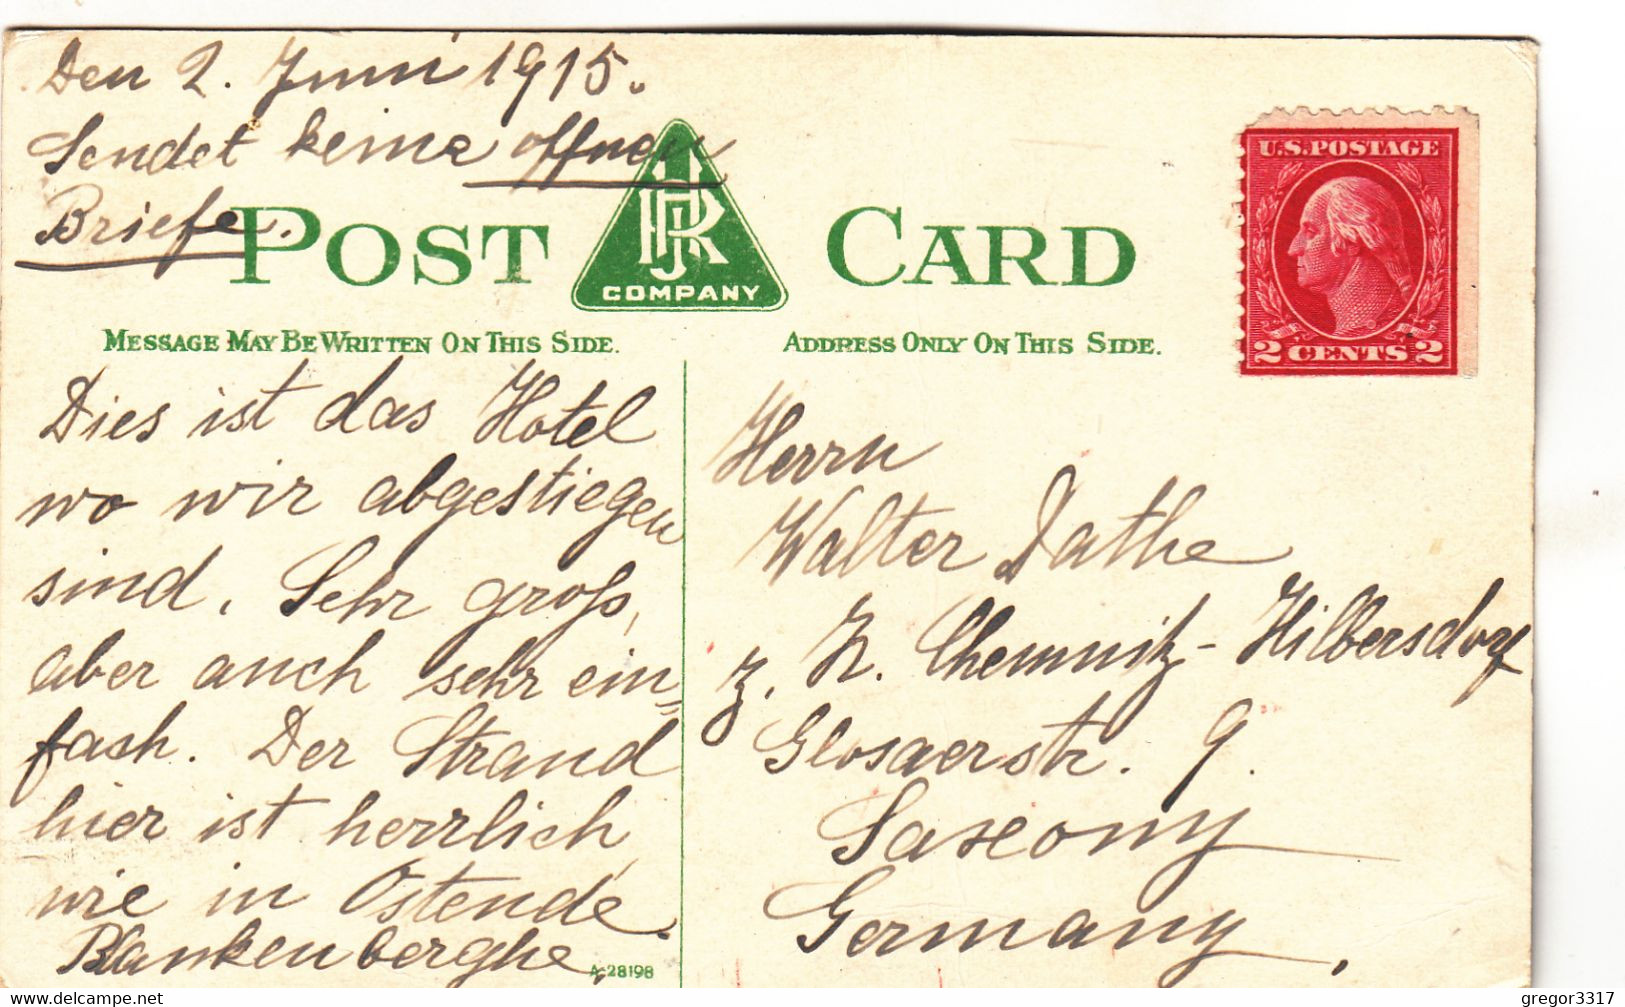 Den 2. Juni 1915.
Sendet keine offnen
Briefe.
POST CARD
JR
COMPANY
U.S. POSTAGE
2 CENTS 2
MESSAGE MAY BE WRITTEN ON THIS SIDE.
ADDRESS ONLY ON THIS SIDE.
Dies ist das Hotel
wo wir abgestiegen
sind. Sehr groß,
aber auch sehr ein=
fach. Der Strand
hier ist herrlich,
wie in Ostende.
Blankenberghe.
A-28198
Herrn
Walter Dathe
z. Z. Chemnitz-Hilbersdorf
Glosaerstr. 9.
Saxony
Germany.
gregor3317